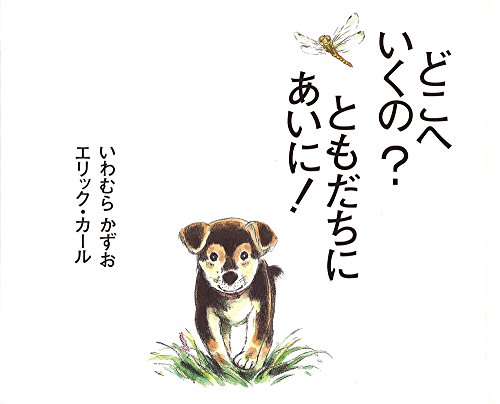 どこへ
いくの？
ともだちに
あいに！
いわむら かずお
エリック・カール